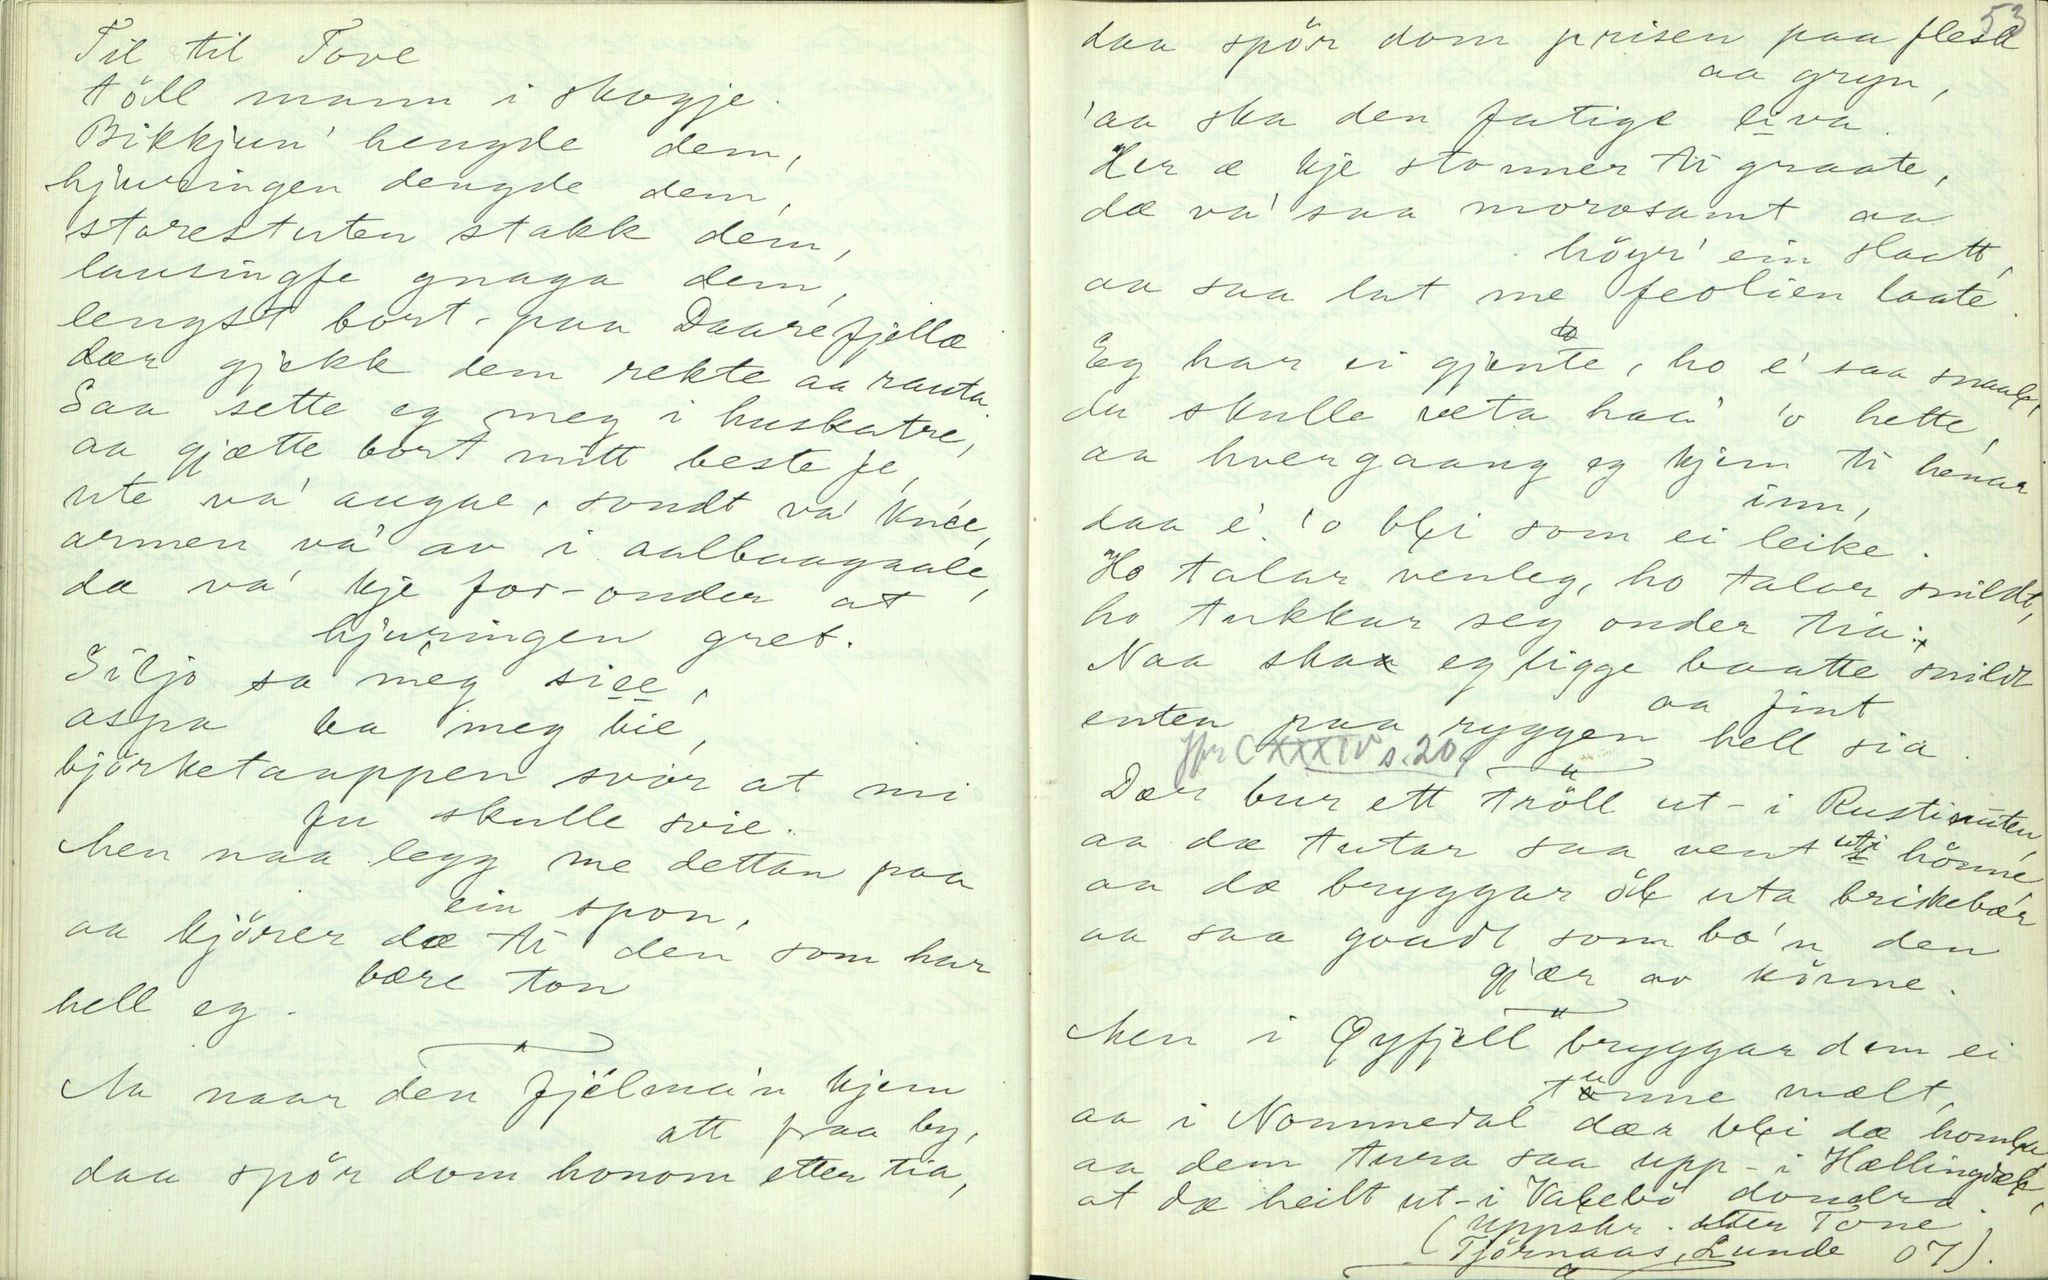 Til til Tove
töll mann i skogje.
Bikkjun' hengde dem,
hjuringen dengde dem,
starestuten stakk dem,
lausingfe gnaga dem,
lengst bort- paa Daarefjellæ
dær gjekk dem rekte aa rauta.
Saa sette eg meg i huskatre,
aa gjætte bort mitt beste fe,
ute va' augae, sondt va' kne'e,
armen va' av i aalbaagaale,
dæ va' kje for-onder at
hjuringen gret.
Siljo sa meg siee,
aspa ba meg bie,
björketauppen svór at mi
fu skulle svie.
Men naa legg me dettan paa
ein spon,
aa kjörer dæ ti den som har
bære ton
hell eg.
Aa naar den fjelmain kjem
att fraa by,
daa spör dom honom etter tia,
53
daa spör dom prisen paa flesk
aa gryn,
'aa ska den fatige liva.
Her æ kje stonner ti graate,
dæ va' saa morosamt aa
höyr' ein slaatt,
aa saa lat me feolien laate.
Eg har ei gjente, ho e' saa snaal,
du skulle væta haa' 'o hette,
aa hvergaang eg kjem ti henar
inn,
daa e' 'o bli som ei leike.
Ho talar venleg, ho talar snildt,
ho tukkar seg onder tia:
Naa skaa eg ligge baatte snildt
aa fint
enten paa ryggen hell sia.
jfr CXXXIV s. 20,
Dær bur ett tröll ut- i Rustinuten,
aa dæ tutar saa vent uti hönne,
aa dæ bryggar öl uta briskebær
aa saa goadt som bo'n den
gjær av könne.
Men i Øyfjell bryggar dem ei
tunne mælt,
aa i Nommedal dær bli dæ homla,
aa dem tura saa upp- i Hællingdæl,
at dæ heilt ut- i Valebö dondra.
(Uppskr. etter Tone
Tjörnaas, Lunde 07).